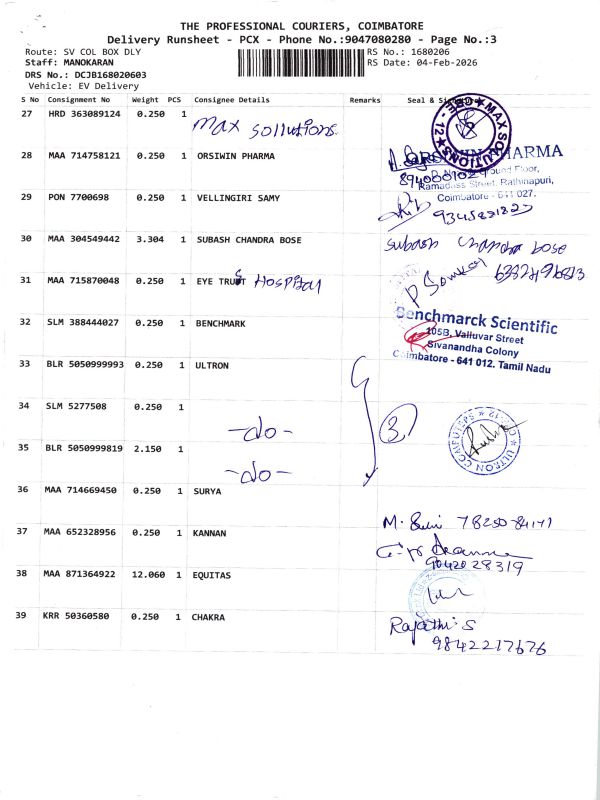 THE PROFESSIONAL COURIERS, COIMBATORE
Delivery Runsheet - PCX - Phone No.:9047080280 - Page No.:3
Route: SV COL BOX DLY
RS No.: 1680206
Staff: MANOKARAN
RS Date: 04-Feb-2026
DRS No.: DCJB168020603
Vehicle: EV Delivery
S No Consignment No Weight PCS Consignee Details Remarks Seal & Signature
27 HRD 363089124 0.250 1 Max Sollutions
MAX SOLUTIONS CBE - 12
28 MAA 714758121 0.250 1 ORSIWIN PHARMA
PHARMA
Ground Floor,
Ramadass Street, Rathinapuri,
Coimbatore - 641 027.
29 PON 7700698 0.250 1 VELLINGIRI SAMY
30 MAA 304549442 3.304 1 SUBASH CHANDRA BOSE
Subash Chandra bose
31 MAA 715870048 0.250 1 EYE TRUST Hospital
32 SLM 388444027 0.250 1 BENCHMARK
Benchmarck Scientific
105B, Valluvar Street
Sivanandha Colony
Coimbatore - 641 012. Tamil Nadu
33 BLR 5050999993 0.250 1 ULTRON
34 SLM 5277508 0.250 1 -do-
3
ULTRON COMPUTERS CBE-12
35 BLR 5050999819 2.150 1 -do-
36 MAA 714669450 0.250 1 SURYA
37 MAA 652328956 0.250 1 KANNAN
9042028319
38 MAA 871364922 12.060 1 EQUITAS
39 KRR 50360580 0.250 1 CHAKRA
Rajathi S
9842217676